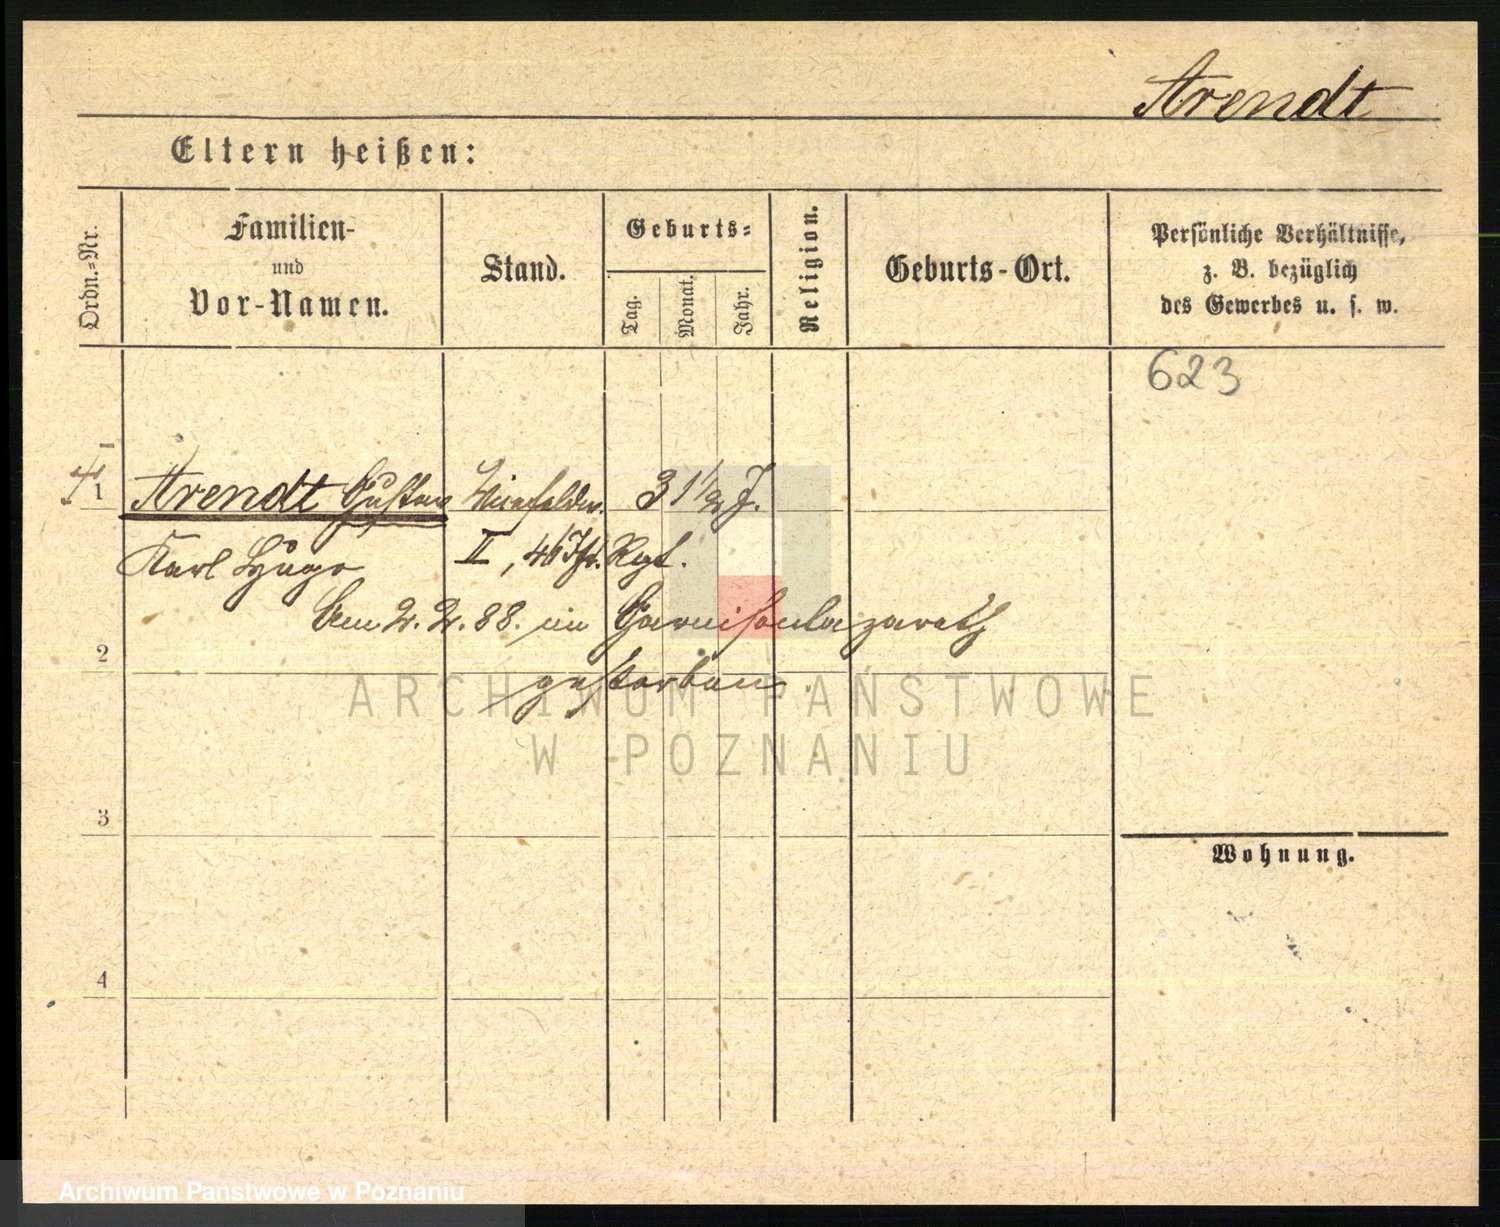 Arendt
Eltern heißen:
Ordn.-Nr.
Familien-
und
Vor-Namen.
Stand.
Geburts-
Tag.
Monat.
Jahr.
Religion.
Geburts-Ort.
Persönliche Verhältnisse,
z. B. bezüglich
des Gewerbes u. s. w.
623
1 Arendt Gustav Vicefeldw. 31 1/2 J.
Karl Hugo II, 46 Inf. Rgt.
Am 2. 2. 88. im Garnisonlazareth
2
gestorben.
ARCHIWUM PAŃSTWOWE
W POZNANIU
3
Wohnung.
4
Archiwum Państwowe w Poznaniu